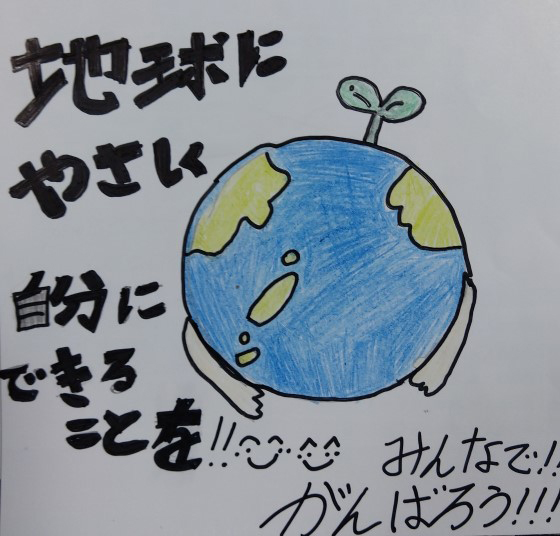 地球に
やさしく
自分に
できる
ことを!!
みんなで!!
がんばろう!!!